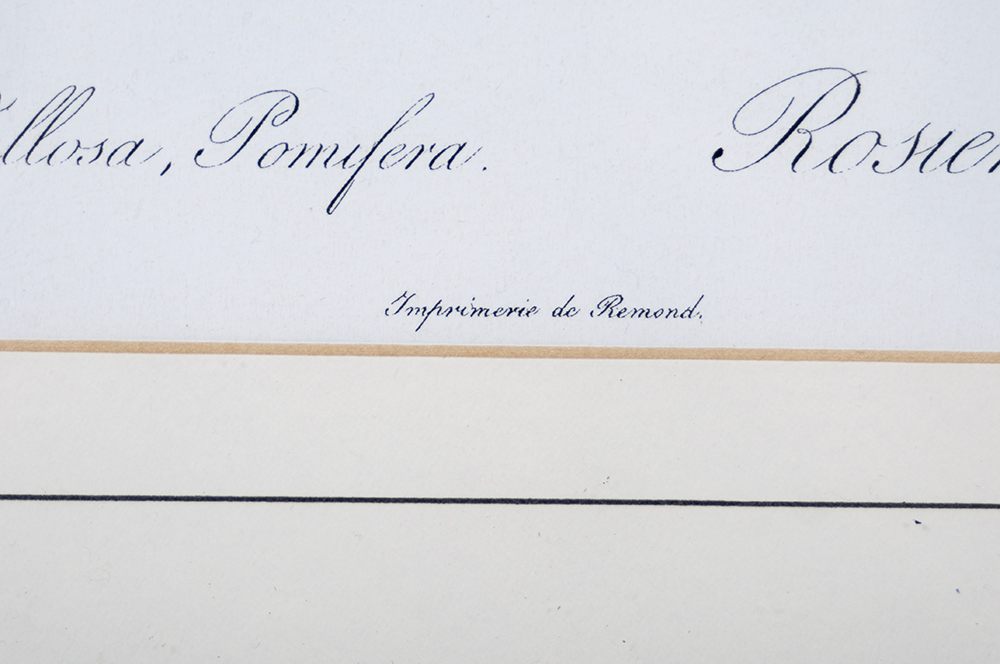 illosa, Pomifera. Rosier
Imprimerie de Remond.